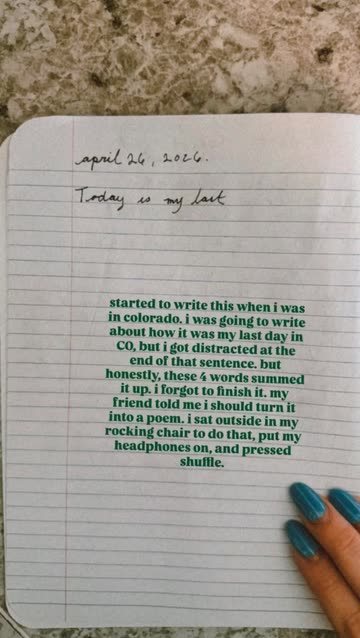 april 26, 2026.
Today is my last
started to write this when i was
in colorado. i was going to write
about how it was my last day in
CO, but i got distracted at the
end of that sentence. but
honestly, these 4 words summed
it up. i forgot to finish it. my
friend told me i should turn it
into a poem. i sat outside in my
rocking chair to do that, put my
headphones on, and pressed
shuffle.